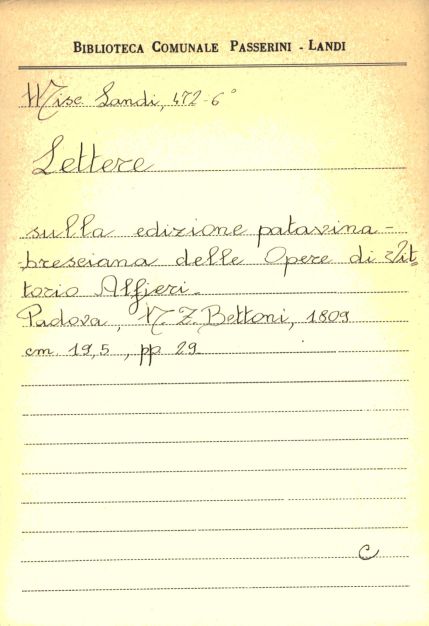 BIBLIOTECA COMUNALE PASSERINI - LANDI
Misc. Landi, 472-6°
Lettere
sulla edizione patavina-
bresciana delle Opere di Vit=
torio Alfieri.
Padova, N. Z. Bettoni, 1809
cm. 19,5, pp 29
C